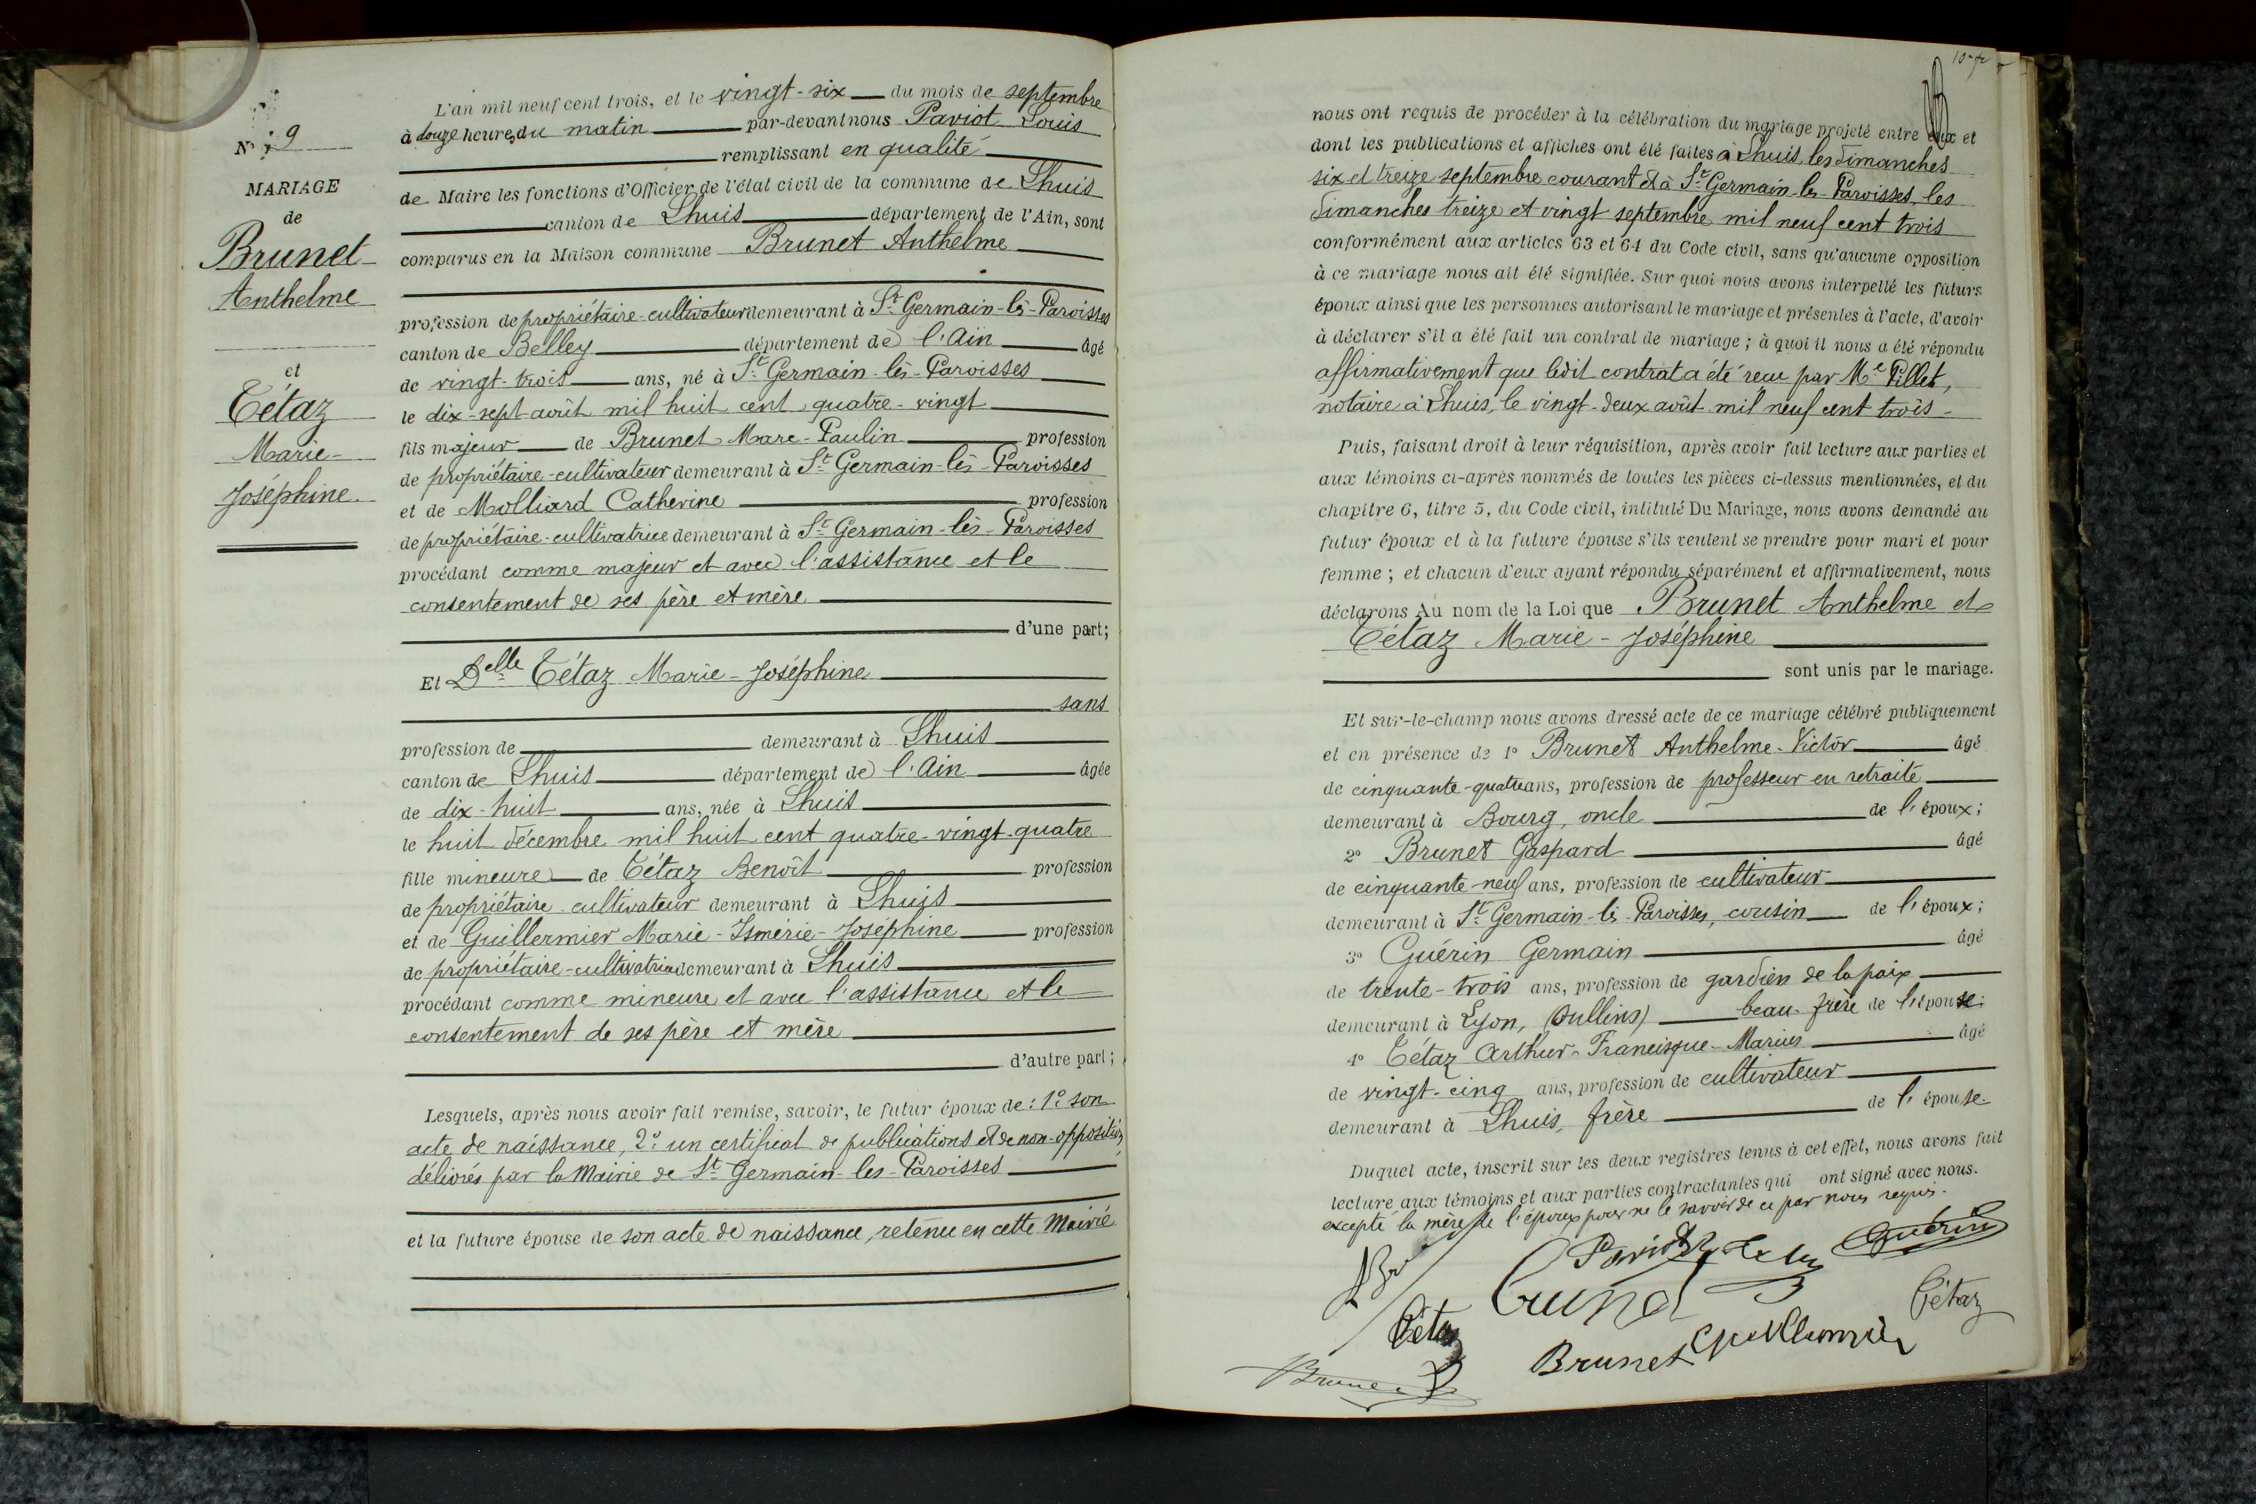 N° 9
MARIAGE
de
Brunet
Anthelme
et
Tétaz
Marie-
Joséphine.
L'an mil neuf cent trois, et le vingt-six du mois de septembre
à douze heures du matin par-devant nous Paviot Louis
remplissant en qualité
de Maire les fonctions d'Officier de l'état civil de la commune de Lhuis
canton de Lhuis département de l'Ain, sont
comparus en la Maison commune Brunet Anthelme
profession de propriétaire-cultivateur demeurant à St Germain-les-Paroisses
canton de Belley département de l'Ain âgé
de vingt-trois ans, né à St Germain-les-Paroisses
le dix-sept août mil huit cent quatre-vingt
fils majeur de Brunet Marc-Paulin profession
de propriétaire-cultivateur demeurant à St Germain-les-Paroisses
et de Molliard Catherine profession
de propriétaire-cultivatrice demeurant à St Germain-lès-Paroisses
procédant comme majeur et avec l'assistance et le
consentement de ses père et mère
d'une part;
Et Delle Tétaz Marie-Joséphine
sans
profession de demeurant à Lhuis
canton de Lhuis département de l'Ain âgée
de dix-huit ans, née à Lhuis
le huit décembre mil huit cent quatre-vingt-quatre
fille mineure de Tétaz Benoît profession
de propriétaire-cultivateur demeurant à Lhuis
et de Guillermier Marie-Ismérie-Joséphine profession
de propriétaire-cultivatrice demeurant à Lhuis
procédant comme mineure et avec l'assistance et le
consentement de ses père et mère
d'autre part;
Lesquels, après nous avoir fait remise, savoir, le futur époux de : 1° son
acte de naissance, 2° un certificat de publications et de non-opposition,
délivrés par la Mairie de St Germain-les-Paroisses
et la future épouse de son acte de naissance, retenu en cette Mairie
nous ont requis de procéder à la célébration du mariage projeté entre eux et
dont les publications et affiches ont été faites à Lhuis, les dimanches
six et treize septembre courant et à St Germain-les-Paroisses, les
dimanches treize et vingt septembre mil neuf cent trois
conformément aux articles 63 et 64 du Code civil, sans qu'aucune opposition
à ce mariage nous ait été signifiée. Sur quoi nous avons interpellé les futurs
époux ainsi que les personnes autorisant le mariage et présentes à l'acte, d'avoir
à déclarer s'il a été fait un contrat de mariage; à quoi il nous a été répondu
affirmativement que ledit contrat a été reçu par Me Pillet,
notaire à Lhuis, le vingt-deux août mil neuf cent trois-
Puis, faisant droit à leur réquisition, après avoir fait lecture aux parties et
aux témoins ci-après nommés de toutes les pièces ci-dessus mentionnées, et du
chapitre 6, titre 5, du Code civil, intitulé Du Mariage, nous avons demandé au
futur époux et à la future épouse s'ils veulent se prendre pour mari et pour
femme; et chacun d'eux ayant répondu séparément et affirmativement, nous
déclarons Au nom de la Loi que Brunet Anthelme et
Tétaz Marie-Joséphine
sont unis par le mariage.
Et sur-le-champ nous avons dressé acte de ce mariage célébré publiquement
et en présence de 1° Brunet Anthelme-Victor âgé
de cinquante-quatre ans, profession de professeur en retraite
demeurant à Bourg, oncle de l'époux;
2° Brunet Gaspard âgé
de cinquante-neuf ans, profession de cultivateur
demeurant à St Germain-les-Paroisses, cousin de l'époux;
3° Guérin Germain âgé
de trente-trois ans, profession de gardien de la paix
demeurant à Lyon, (Oullins) beau-frère de l'épouse;
4° Tétaz Arthur-Francisque-Marius âgé
de vingt-cinq ans, profession de cultivateur
demeurant à Lhuis, frère de l'épouse
Duquel acte, inscrit sur les deux registres tenus à cet effet, nous avons fait
lecture aux témoins et aux parties contractantes qui ont signé avec nous.
excepté la mère de l'époux pour ne le savoir de ce par nous requis.
Guérin
Brunet
Tétaz
Tétaz
Brunet Guillermier
Brunet